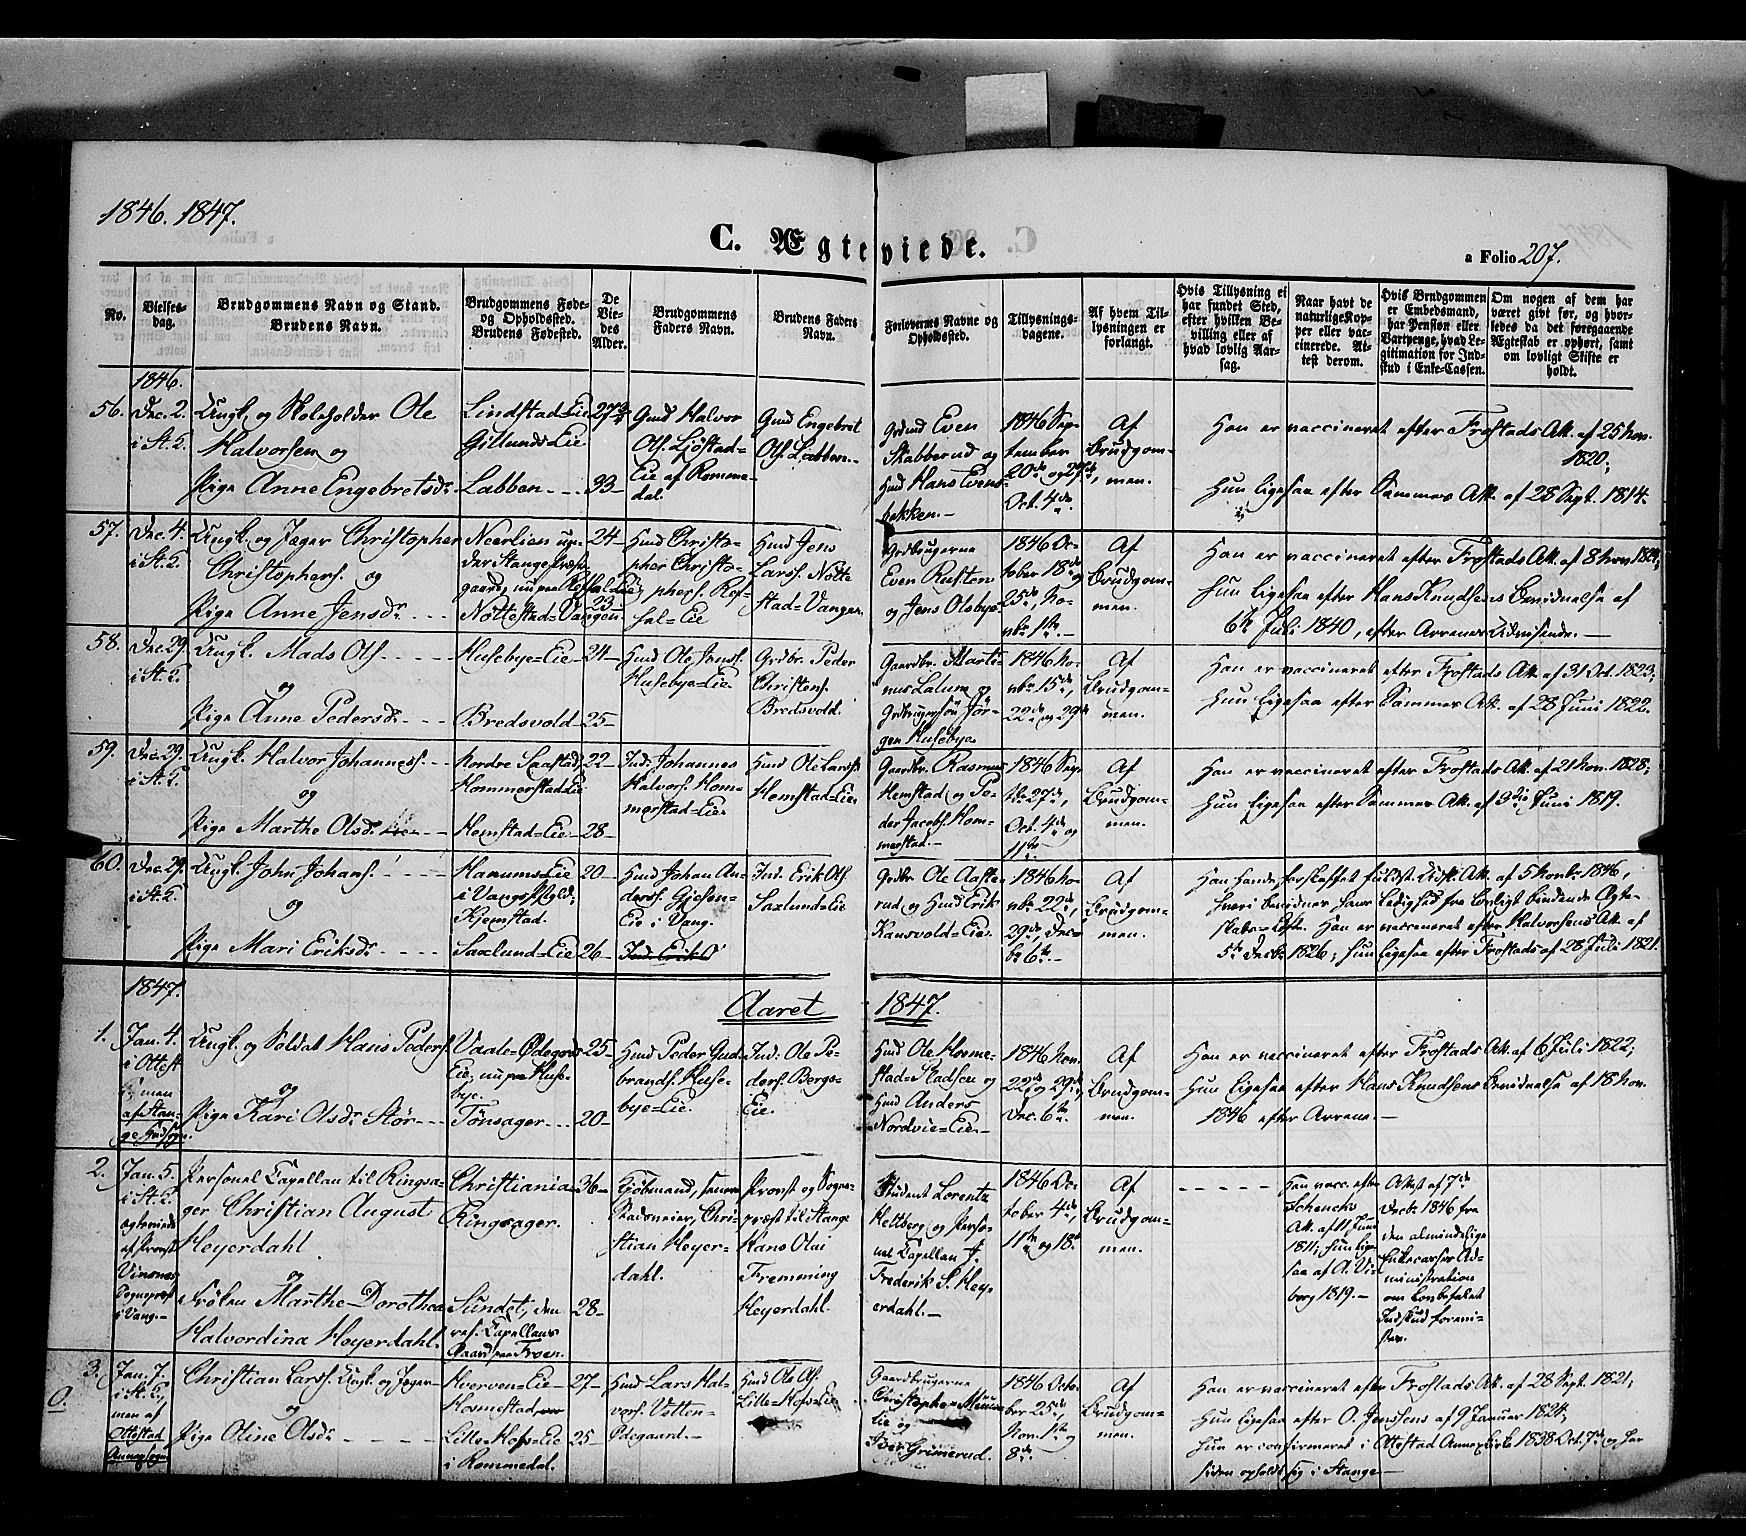 1846. 1847.
C. Ægteviede.
a Folio 207.
No.
Vielses-
dag.
Brudgommens Navn og Stand.
Brudens Navn.
Brudgommens Føde-
og Opholdssted.
Brudens Fødested.
De
Vie-
des
Alder.
Brudgommens
Faders Navn.
Brudens Faders
Navn.
Forlovernes Navne og
Opholdssted.
Tillysnings-
dagene.
Af hvem Til-
lysningen er
forlangt.
Hvis Tillysning ei
har fundet Sted,
efter hvilken Be-
villing eller af
hvad lovlig Aar-
sag.
Naar havt de
naturlige Kop-
per eller vac-
cinerede. At-
test derom.
Hvis Brudgommen
er Embedsmand,
har Pension eller
Vartpenge, hvad Le-
gitimation for Ind-
skud i Enke-Cassen.
Om nogen af dem har
været givt før, og hvor-
ledes da det foregaaende
Ægteskab er ophørt, samt
om lovligt Skifte er
holdt.
1846.
56.
Dec. 2.
i St. K.
Ungk. og Skoleholder Ole
Halvorsen og
Pige Anne Engebretsdr.
Lindstad-Eie
Gillunds-Eie
Labben
27
33
Gmd Halvor
Ols. Ljøstad-
Eie af Romme-
dal.
Gmd Engebret
Ols. Labben.
Even
Skabberud og
Hmd Hans Evens-
bakken.
1846 Sep-
tember
20de og 27de,
Oct. 4de.
Af
Brudgom-
men.
Han er vaccineret efter Frostads Att. af 25 Nov.
1820;
Hun ligesaa efter Sammes Att. af 28 Sept. 1814.
57.
Dec. 4.
i St. K.
Ungk. og Jæger Christopher
Christophers. og
Pige Anne Jensdr
Neerlien un-
der Stange Præste-
gaard,
Nøttestad-Vangen
24
23
Hmd Christo-
pher Christo-
phers.
Hmd Jens
Larss. Nøtte-
stad-Vangen
Grdbrugerne
Even Rusten
og Jens Olsbye
1846 Oc-
tober 18de og
25de, No-
vbr. 1ste.
Af
Brudgom-
men.
Han er vaccineret efter Frostads Att. af 8 Nov.
Hun ligesaa efter Hans Knudsens Bevidnelse af
6te Juli 1840, efter Arrenes Udvisende.
58.
Dec. 29.
i St. K.
Ungk. Mads Ols.
og
Pige Anne Pedersdr
Husebye-Eie
Bredsvold
24
25
Hmd Ole Jonss.
Husebye-Eie.
Grdbr. Peder
Christens.
Bredsvold.
Gaardbr. Marti-
nus Lalum og
Jør-
gen Husebye.
1846 No-
vbr. 15de,
22de og 29de
Af
Brudgom-
men.
Han er vaccineret efter Frostads Att. af 31 Oct. 1823;
Hun ligesaa efter Sammes Att. af 28 Juni 1822.
59.
Dec. 29.
i St. K.
Ungk. Halvor Johanness.
og
Pige Marthe Olsdr.
Nordre Saastad,
Hommerstad-Eie
Hemstad-Eie
22
28
Ind. Johannes
Halvors. Hom-
merstad-Eie.
Hmd Ole Larss.
Hemstad-Eie.
Gaardbr. Rasmus
Hemstad og Pe-
der Jacobs. Hom-
merstad.
1846 Sep-
tbr. 27de,
Oct. 4de og
11te.
Af
Brudgom-
men.
Han er vaccineret efter Frostads Att. af 21 Nov. 1828;
Hun ligesaa efter Sammes Att. af 3die Juni 1819.
60.
Dec. 29.
i St. K.
Ungk. John Johans.
og
Pige Mari Eriksdr
i Vangs
Kjemstad.
Saxlund-Eie
20
26
Hmd Johan An-
ders. Gjesen-
Eie i Vang.
Ind. Erik
Ind. Erik Ols.
Saxlund-Eie
Grdbr. Ole Aaste-
rud og Hmd Erik
Kansvold-Eie.
1846 No-
vbr. 22de,
29de, Dec-
br. 6te.
Af
Brudgom-
men.
Han havde forskaffet Att. af 5 Novbr. 1846,
hvori bevidnes hans Ledighed fra lovligt bindende Ægte-
skabs-Løfte. Han er vaccineret efter Halvorsens Att. af
5te Decbr. 1826; Hun ligesaa efter Frostads af 28 Juli 1821.
1847.
Aaret 1847.
1.
Jan. 4.
i Ottest.
K. men
af Stan-
ge
Ungk. og Soldat Hans Peders.
og
Pige Kari Olsdr. Stor
Vaale-Ødegrds
Eie, nu paa Huse-
bye.
Tønsager
25
20
Hmd Peder Gud-
brands. Huse-
bye-Eie.
Ind. Ole Pe-
ders. Bergs-
Eie.
Hmd Ole Homme-
stad-Pladsen og
Hmd Anders
Nordvie-Eie.
1846 Nov.
22de og 29de,
Dec. 6te.
Af
Brudgom-
men.
Han er vaccineret efter Frostads Att. af 6 Juli 1822;
Hun ligesaa efter Hans Knudsens Bevidnelse af 18 Nov.
1846 efter Arrene.
2.
Jan. 5.
i St. K.
af Provst
Vinsnes,
Sognepræst
i Vang.
Personel Capellan til Ringsa-
ger Christian August
Heyerdahl
og
Frøken Marthe Dorothea
Halvordina Heyerdahl.
Christiania
Ringsager.
Sundet, den
res. Capellans
Gaard paa Froen.
36
28
Kjøbmand, senere
Stadsmeier, Chri-
stian Heyer-
dahl.
Provst og Sogne-
præst til Stange
Hans Olai
Fremming
Heyerdahl.
Student Lorentz
Heltberg og Perso-
nel Capellan J.
Frederik S. Hey-
erdahl.
1846 Oc-
tober 4de,
11te og 18de
Af
Brudgom-
men.
Han vacc. efter
Schencks
Att. af 11 Juni
1811; hun lige-
saa af A. Vi-
borg 1819.
Attest af 7de
Decbr. 1846 fra
den almindelige
Enkecasses Ad-
ministration
om Lovbefalet
Indskud forevi-
stes.
3.
O.
Jan. 7.
i St. K.,
men af
Ottestad
Annexsogn
Christian Larss. Ungk. og Jæger
og
Pige Oline Olsdr
Hverven-Eie
Hommestad
Lille-Hofs-Eie
i Rommedal.
27
25
Hmd Lars Hal-
vors. Votten-
Ødegaard.
Hmd Ole Ols.
Lille-Hofs-Eie
Gaardbrugerne
Christopher
og
Iver Grimerud.
1846 Octo-
ber 25de,
Nov. 1ste og
8de.
Af
Brudgom-
men.
Han er vaccineret efter Frostads Att. af 28 Sept. 1821;
Hun ligesaa efter O. Jenssens af 9 Januar 1824;
Hun er confirmeret i Ottestad Annexkirke 1838 Oct. 7de og har
siden opholdt sig i Stange